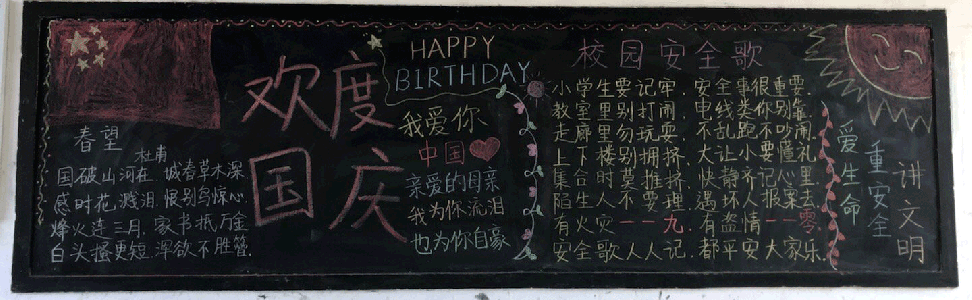 春望
杜甫
国破山河在 城春草木深
感时花溅泪 恨别鸟惊心
烽火连三月 家书抵万金
白头搔更短 浑欲不胜簪
欢度
国庆
HAPPY
BIRTHDAY
我爱你
中国
亲爱的母亲
我为你流泪
也为你自豪
校园安全歌
小学生要记牢 安全事很重要
教室里别打闹 电线类你别靠
走廊里勿玩耍 不乱跑不吵闹
上下楼别拥挤 大让小要懂礼
集合时莫推挤 快静齐记心里
陌生人不要理 遇坏人报案去
有火灾一一九 有盗情一一零
安全歌人人记 都平安大家乐
爱生命
重安全
讲文明